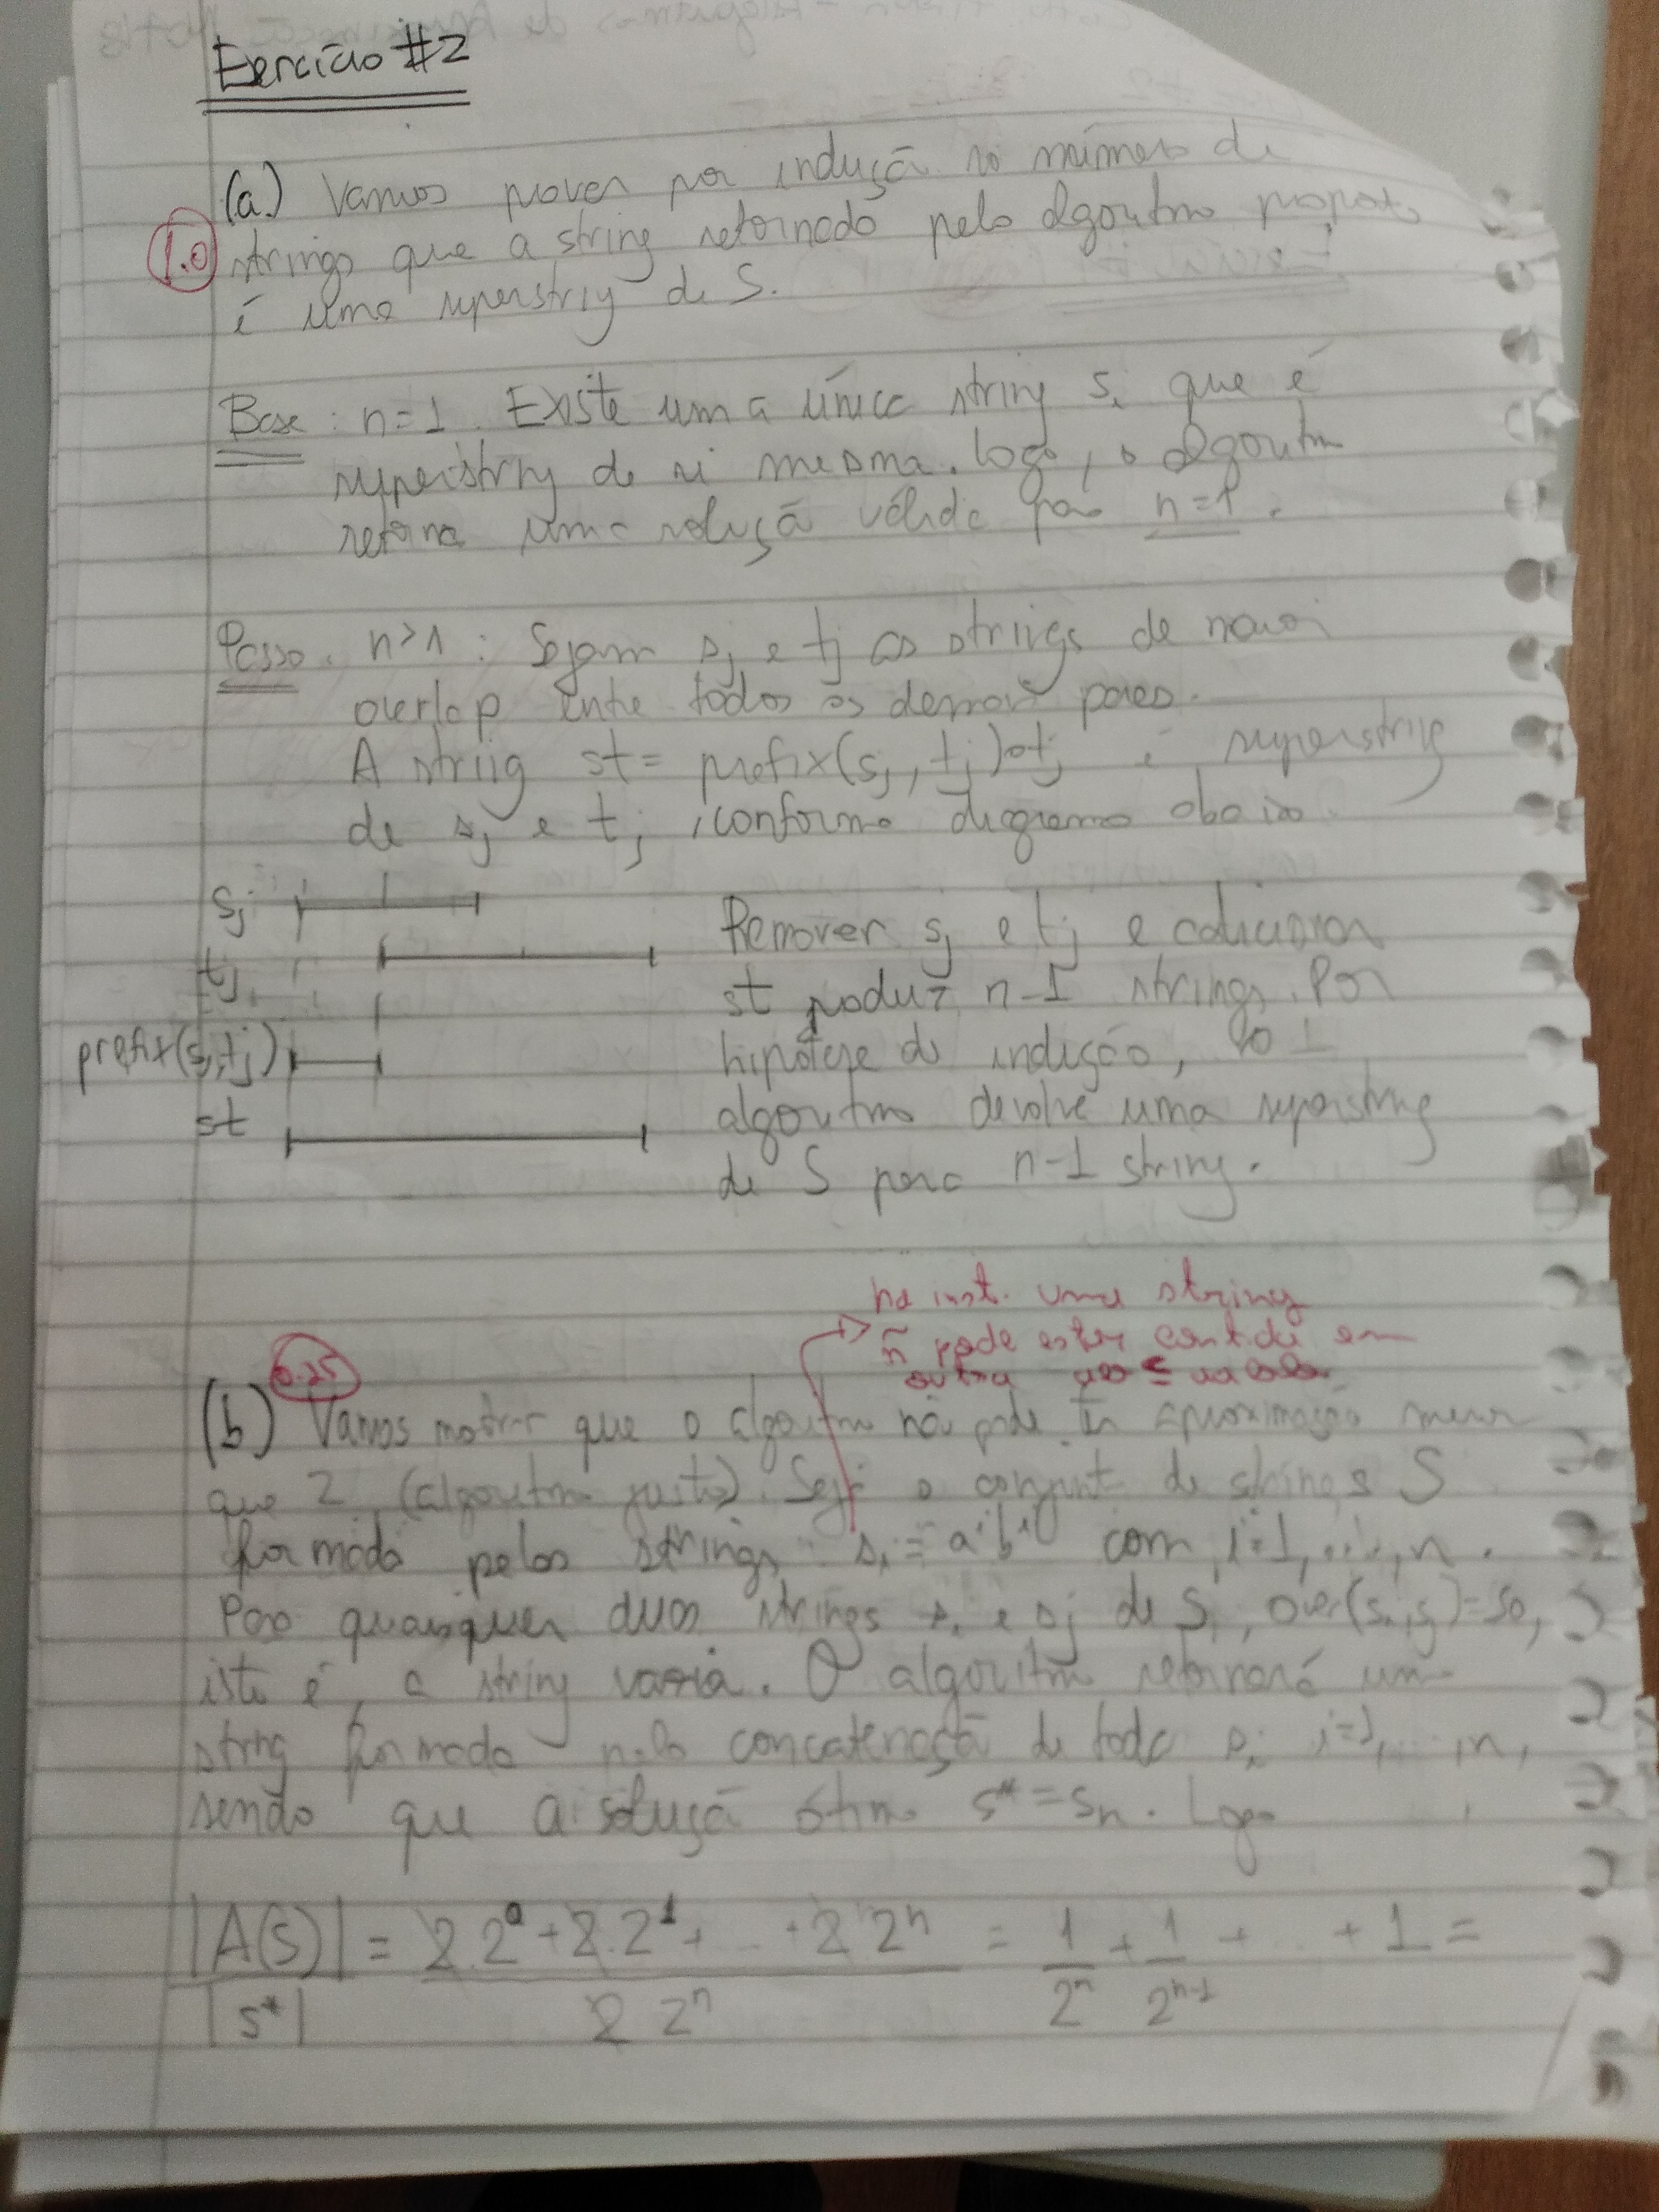 Exercício #2
(a.) Vamos prover por indução no número de
1.0 strings que a string retornada pelo algoritmo proposto
é uma superstring de S.
Base: n=1. Existe uma única string si que é
superstring de si mesma. Logo, o algoritmo
retorna uma solução válida para n=1.
Passo. n>1: Sejam sj e tj as strings de maior
overlap entre todos os demais pares.
A string st = prefix(sj, tj)∘tj é superstring
de sj e tj, conforme diagrama abaixo.
sj
tj
prefix(sj,tj)
st
Remover sj e tj e adicionar
st produz n-1 strings. Por
hipótese de indução, o
algoritmo devolve uma superstring
de S para n-1 string.
na inst. uma string
ñ pode estar contida em
outra ab ⊆ aabb
0.25
(b) Vamos mostrar que o algoritmo não pode ter aproximação menor
que 2 (algoritmo justo). Seja o conjunto de strings S
formado pelas strings si = a b com i=1,...,n.
Para quaisquer duas strings si e sj de S, over(si,sj)=s0,
isto é, a string vazia. O algoritmo retornará uma
string formada pela concatenação de toda si i=1,...,n,
sendo que a solução ótima s*=sn. Logo
|A(S)| / |s*| = (2.2^0 + 2.2^1 + ... + 2 2^n) / (2 2^n) = 1/2^n + 1/2^(n-1) + ... + 1 =